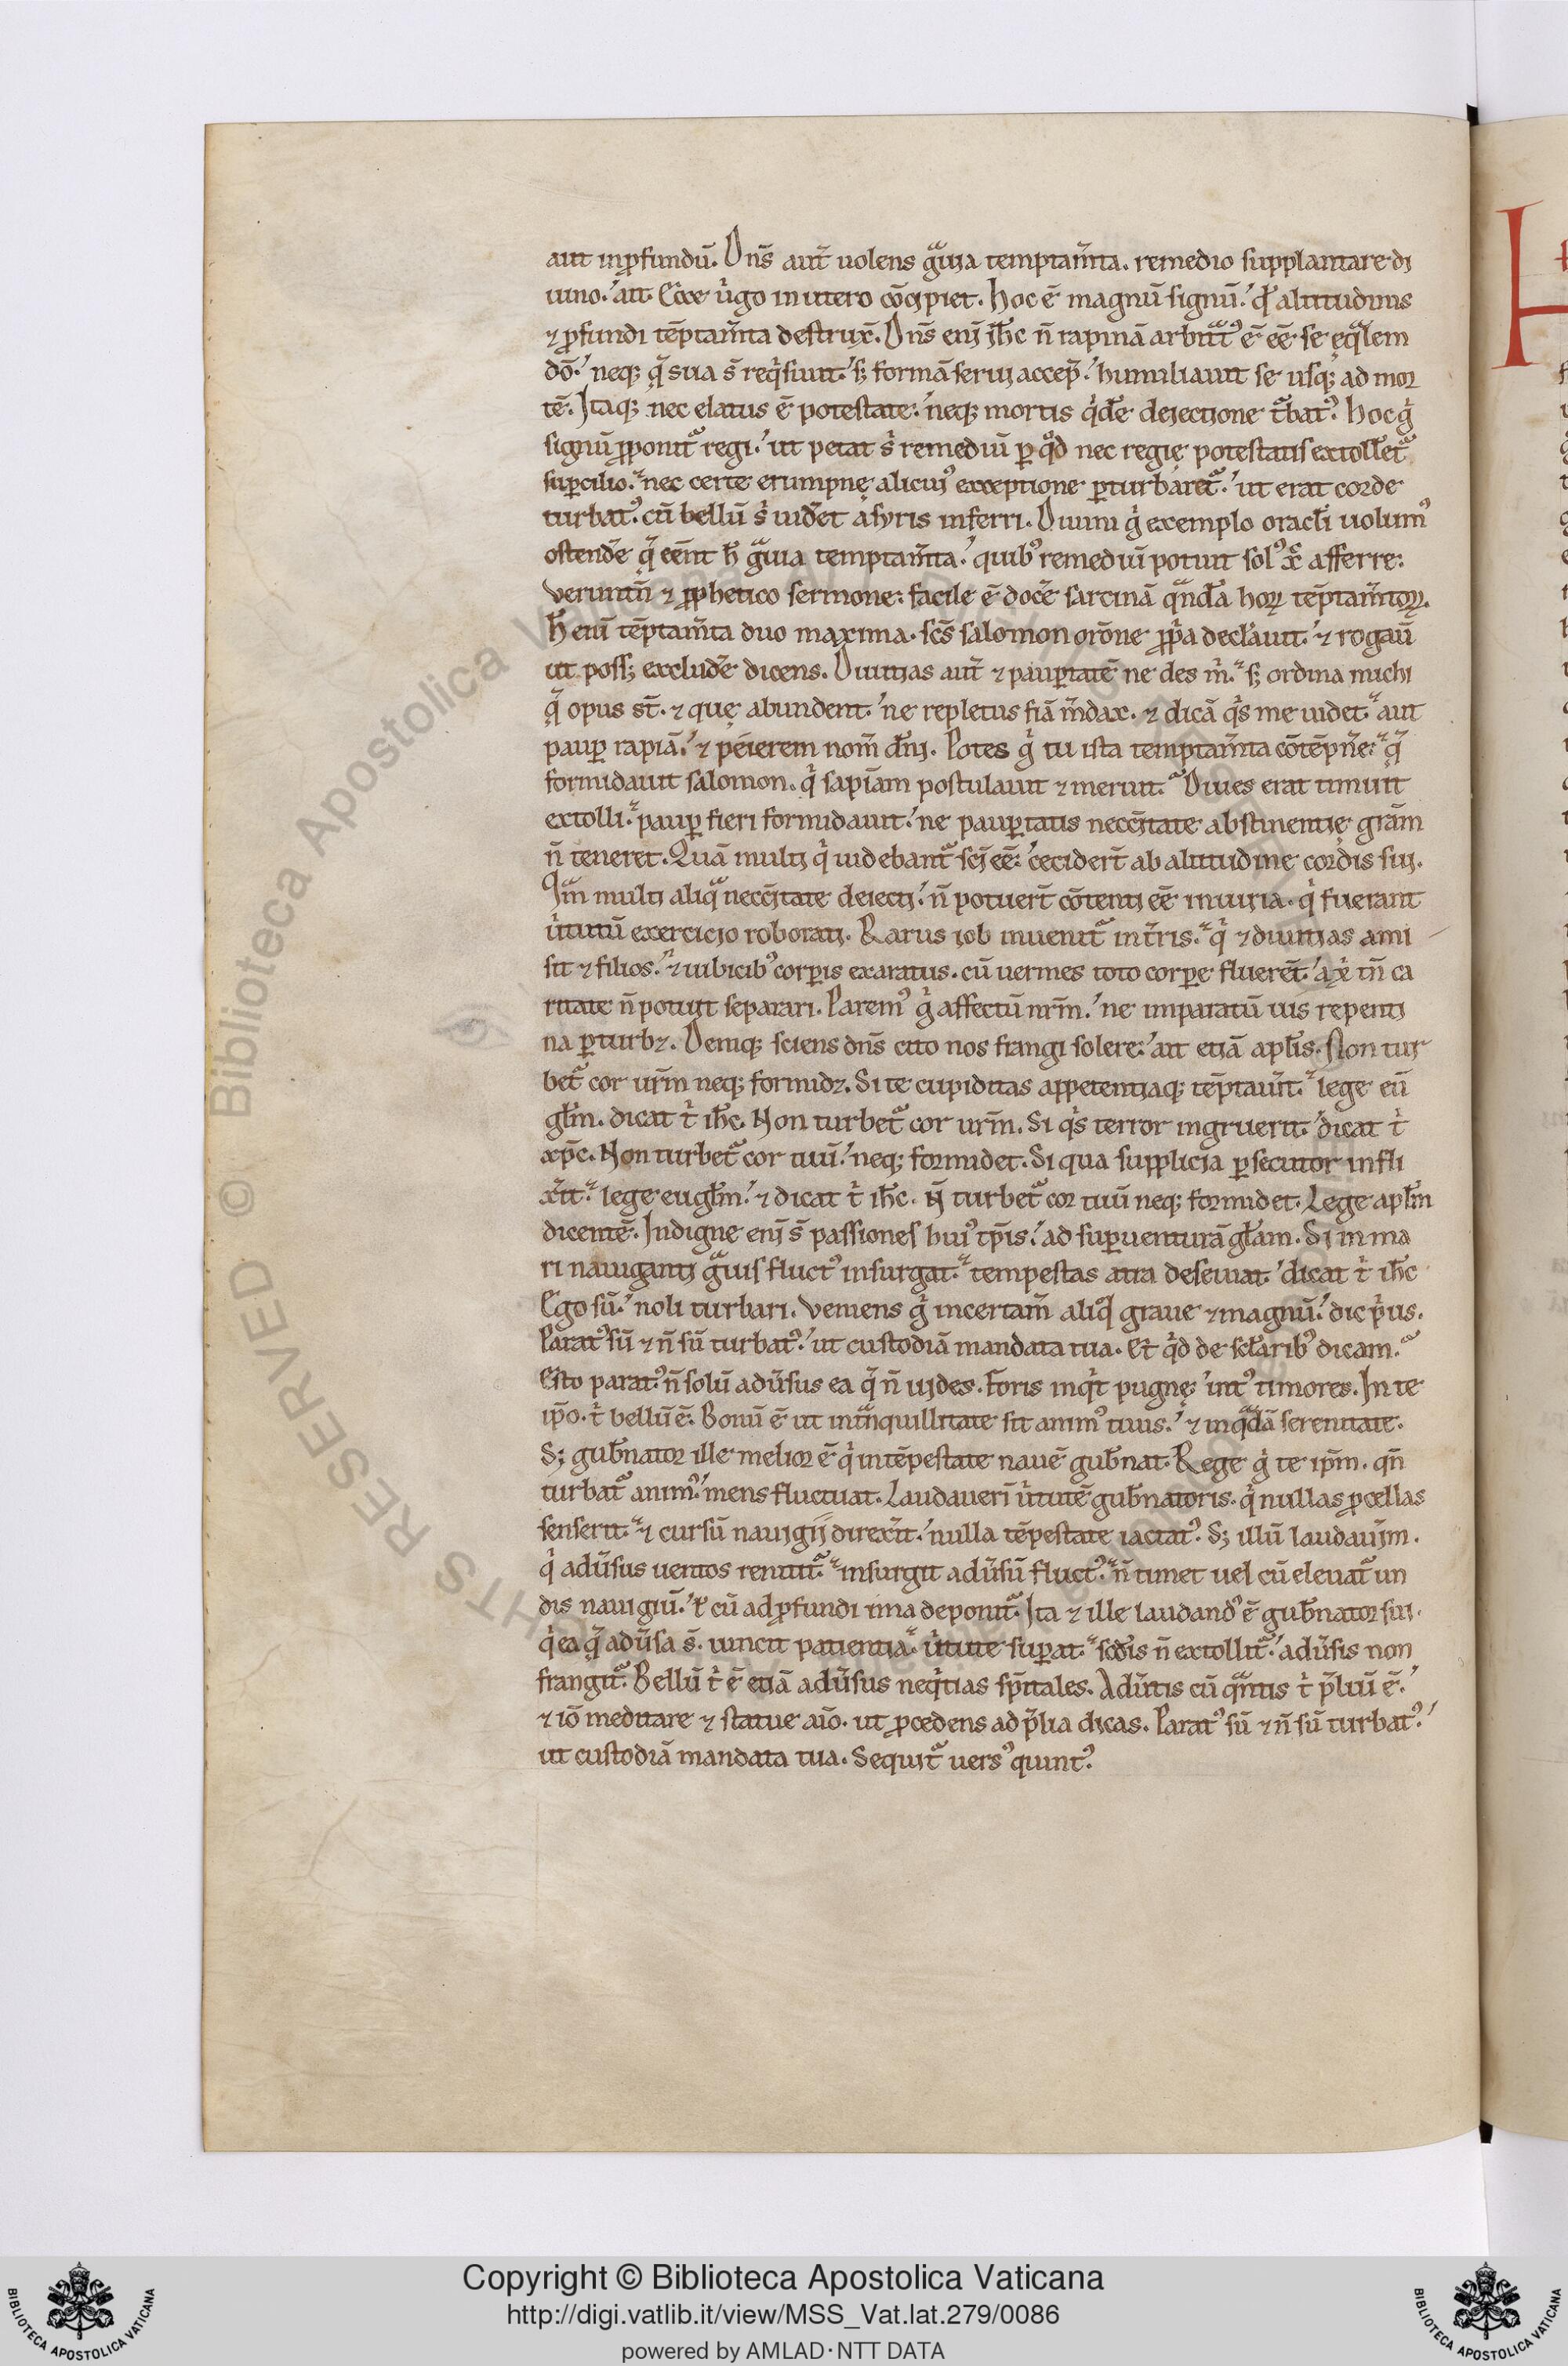 aut in ꝓfundū. Dn̄s aut̄ uolens gͣuia temptam̄ta. remedio supplantare di
uino. ait. Ecce ůgo in utero cōcipiet. Hoc ē magnū signū. qđ altitudinis
⁊ ꝓfundi tēptam̄ta destrux̄. Dn̄s enī ih̄c n̄ rapinā arbitͣtꝰ ē eē se ęqͣlem
dō. neq; q̄ sua s̄ reqͥsiuit. s; formā serui accep̄. humiliauit se usq; ad mor
tē. Itaq; nec elatus ē potestate. neq; mortis qͥdē deiectione t̄batꝰ. Hoc gͥ
signū ꝓponit᷑ regi. ut petat sͥ remediū ꝑ qͦd nec regię potestatis extollet᷑
suꝑcilio. nec certe erumpnę alicuiꝰ exceptione ꝑturbaret᷑. ut erat corde
turbatꝰ. cū bellū sͥ uidēt asyris inferri. Diuini gͥ exemplo oracl̄i uolumꝰ
ostendē q̄ eēnt h̄ gͣuia temptam̄ta. quibꝰ remediū potuit solꝰ xc̄ afferre.
Veruntn̄ ⁊ ꝓphetico sermone: facile ē docē sarcinā qͣndā hoꝝ tēptam̄toꝝ.
H̄ enī tēptam̄ta duo maxima. sc̄s salomon orōne ꝓpͥa declarauit. ⁊ rogauī
ut poss; excludē dicens. Diuitias aut̄ ⁊ pauꝑtatē ne des mͥ. s; ordina michi
q̄ opus st̄. ⁊ quę abundent. ne repletus fiā m̄dax. ⁊ dicā qͥs me uidet. aut
pauꝑ rapiā. ⁊ peierem nom̄ dn̄i. Potes gͥ tu ista temptam̄ta cōtēpn̄e. q̄
formidauit salomon. qͥ sapīam postulauit ⁊ meruit. Diues erat timuit
extolli. pauꝑ fieri formidauit. ne pauꝑtatis necc̄itate abstinentię grām
n̄ teneret. Quā multi qͥ uidebant᷑ sc̄i eē. cecider̄t ab altitudine cordis sui.
Qͣm multi aliqͣ necc̄itate deiecti. n̄ potuer̄t cōtenti eē iniuria. qͥ fuerant
ůtutū exercicio roborati. Rarus iob inuenit᷑ in t̄ris. qͥ ⁊ diuitias ami
sit ⁊ filios. ⁊ uibicibꝰ corꝑis exaratus. cū uermes toto corꝑe fluerēt. a xͥ tn̄ ca
ritate n̄ potuit separari. Paremꝰ gͥ affectū nr̄m. ne imparatū uis repenti
na ꝑturb⁊. Deniq; sciens dn̄s cito nos frangi solere. ait etiā apl̄is. Non tur
bet᷑ cor ur̄m neq; formid⁊. Si te cupiditas appetentiaq; tēptau̇it. lege eū
gl̄m. dicat tͥ ih̄c. Non turbet᷑ cor ur̄m. Si qͥs terror ingruerit. dicat tͥ
xp̄c. Non turbet᷑ cor tuū. neq; formidet. Si qua supplicia ꝑsecutor infli
xͥit. lege eugl̄m. ⁊ dicat tͥ ih̄c. N̄ turbet᷑ cor tuū neq; formidet. Lege apl̄m
dicentē. Indigne enī s̄ passiones huiꝰ tp̄is. ad suꝑuenturā gl̄am. Si in ma
ri nauiganti gͣuis fluctꝰ insurgat. tempestas atra deseuiat. dicat tͥ ih̄c.
Ego sū. noli turbari. Veniens gͥ in certam̄ aliqͦd graue ⁊ magnū. dic pͥus.
Paratꝰ sū ⁊ n̄ sū turbatꝰ. ut custodiā mandata tua. Et qͥd de sc̄laribꝰ dicam.
Esto paratꝰ. n̄ solū adůsus ea q̄ n̄ uides. Foris inqͥt pugnę intꝰ timores. In te
ip̄o. tͥ bellū ē. Bonū ē ut in tͣnquillitate sit animꝰ tuus. ⁊ in qͣdā serenitate.
S; gub̄nator ille melior ē qͥ in tēpestate nauē gub̄nat. Rege gͥ te ip̄m. qn̄
turbat᷑ animꝰ. mens fluctuat. Laudauerī ůtutē gub̄natoris. qͥ nullas ꝓcellas
senserit. ⁊ cursū nauigii direxͥit. nulla tēpestate iactatꝰ. S; illū laudauim.
qͥ adůsus uentos renitit᷑. insurgit adůsū fluctꝰ. n̄ timet uel cū eleuat᷑ un
dis nauigiū. ⁊ cū ad ꝓfundi ima deponit᷑. Ita ⁊ ille laudandꝰ ē gub̄nator sui.
qͥ ea q̄ adůsa s̄. uincit patientia. ůtute suꝑat. scd̄is n̄ extollit᷑. adůsis non
frangit᷑. Bellū tͥ ē etiā adůsus neqͥtias sp̄itales. Adůtis cū qͣntis tͥ p̄liū ē.
⁊ iō meditare ⁊ statue aīo. ut ꝓcedens ad p̄lia dicas. Paratꝰ sū ⁊ n̄ sū turbatꝰ.
ut custodiā mandata tua. Sequit᷑ uersꝰ quintꝰ.
© Biblioteca Apostolica Vaticana
RIGHTS RESERVED
Copyright © Biblioteca Apostolica Vaticana
http://digi.vatlib.it/view/MSS_Vat.lat.279/0086
powered by AMLAD·NTT DATA
BIBLIOTECA APOSTOLICA VATICANA
BIBLIOTECA APOSTOLICA VATICANA